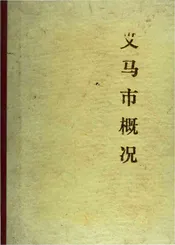 义马市概况